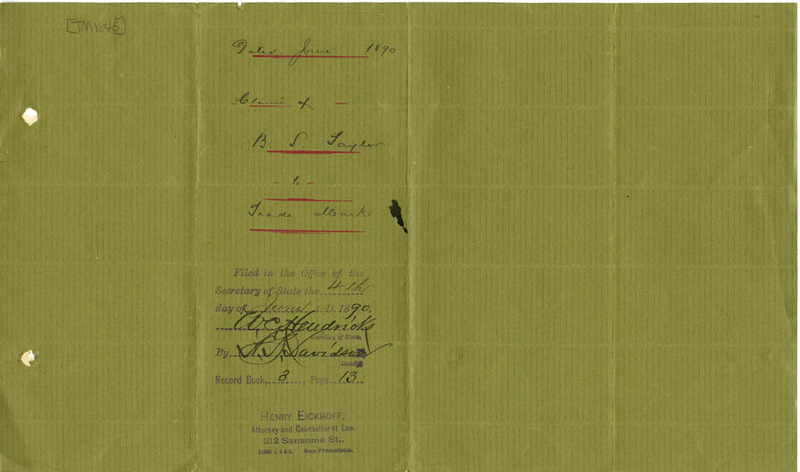 [TM1845]
Dated June 1890
Claim of
B S. Taylor
- to -
Trade Mark
Filed in the Office of the
Secretary of State the 4th
day of June A. D. 1890.
W C Hendricks
Secretary of State.
By Davidson
Deputy
Record Book, 3, Page 13
HENRY EICKHOFF,
Attorney and Counsellor at Law.
212 Sansome St.,
San Francisco.